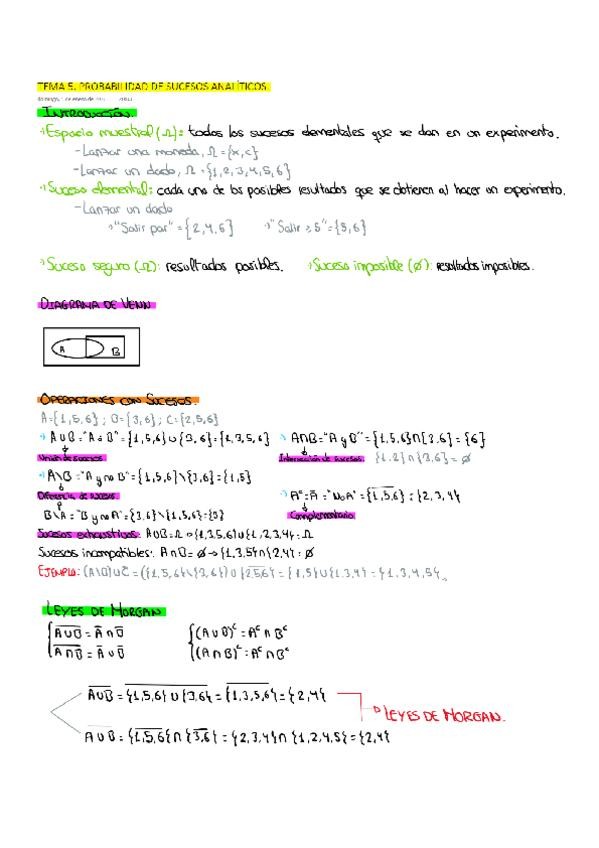 TEMA 5. PROBABILIDAD DE SUCESOS ANALÍTICOS.
INTRODUCCIÓN.
Espacio muestral (Ω): todos los sucesos elementales que se dan en un experimento.
- Lanzar una moneda, Ω = {x, c}
- Lanzar un dado, Ω = {1, 2, 3, 4, 5, 6}
Suceso elemental: cada uno de los posibles resultados que se obtienen al hacer un experimento.
- Lanzar un dado
"Salir par" = {2, 4, 6} "Salir ≥ 5" = {5, 6}
Suceso seguro (Ω): resultados posibles. Suceso imposible (Ø): resultados imposibles.
DIAGRAMA DE VENN
A B
OPERACIONES CON SUCESOS.
A = {1, 5, 6} ; B = {3, 6} ; C = {2, 5, 6}
A∪B = "A o B" = {1, 5, 6} ∪ {3, 6} = {1, 3, 5, 6} A∩B = "A y B" = {1, 5, 6} ∩ {3, 6} = {6}
Unión de sucesos Intersección de sucesos {1, 2} ∩ {3, 6} = Ø
A\B = "A y no B" = {1, 5, 6} \ {3, 6} = {1, 5}
Diferencia de sucesos Aᶜ = A̅ = "No A" = {1, 5, 6}̅ = {2, 3, 4}
B\A = "B y no A" = {3, 6} \ {1, 5, 6} = {3} Complementario
Sucesos exhaustivos: A∪B = Ω → {1, 3, 5, 6} ∪ {1, 2, 3, 4} = Ω
Sucesos incompatibles: A∩B = Ø → {1, 3, 5} ∩ {2, 4} = Ø
EJEMPLO: (A\B) ∪ C̅ = ({1, 5, 6} \ {3, 6}) ∪ {2, 5, 6}̅ = {1, 5} ∪ {1, 3, 4} = {1, 3, 4, 5}
LEYES DE MORGAN
A∪B̅ = A̅ ∩ B̅ (A∪B)ᶜ = Aᶜ ∩ Bᶜ
A∩B̅ = A̅ ∪ B̅ (A∩B)ᶜ = Aᶜ ∩ Bᶜ
A∪B̅ = {1, 5, 6} ∪ {3, 6}̅ = {1, 3, 5, 6}̅ = {2, 4}
LEYES DE MORGAN.
A∪B = {1, 5, 6}̅ ∩ {3, 6}̅ = {2, 3, 4} ∩ {1, 2, 4, 5} = {2, 4}